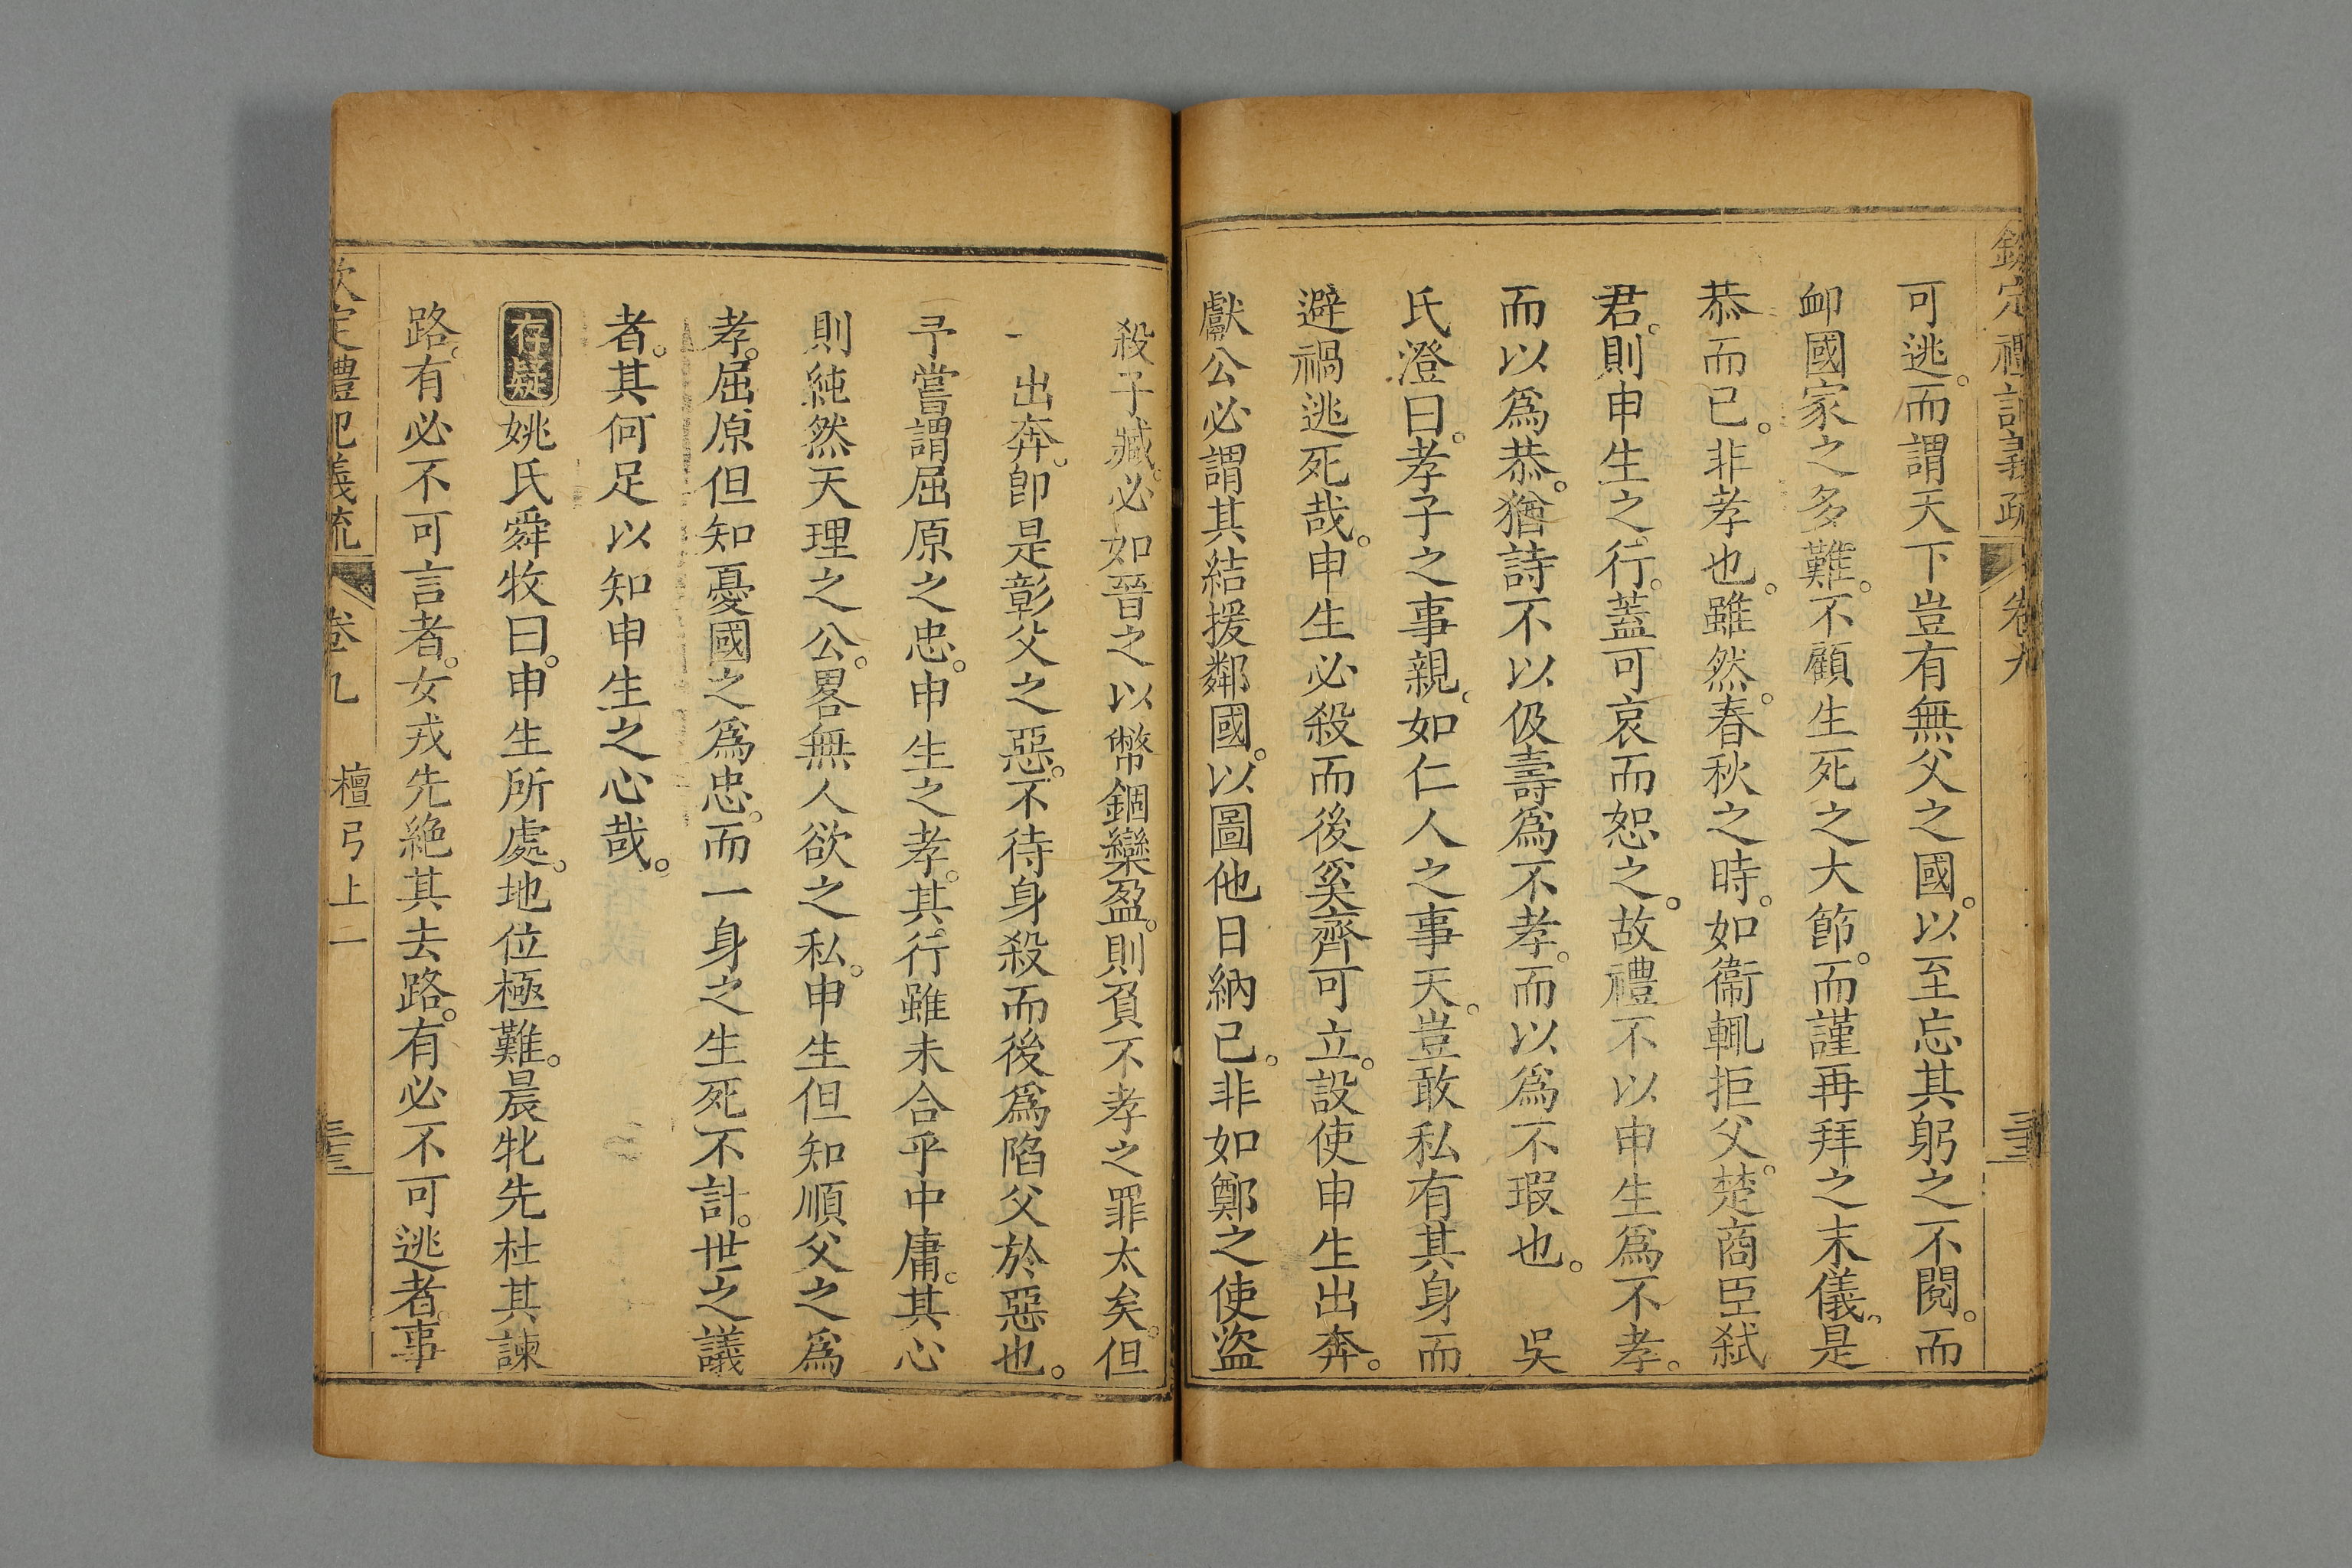 欽定禮記義疏 卷九
可逃。而謂天下豈有無父之國。以至忘其躬之不閱。而
卹國家之多難。不顧生死之大節。而謹再拜之末儀。是
恭而已。非孝也。雖然。春秋之時。如衞輒拒父。楚商臣弒
君。則申生之行。蓋可哀而恕之。故禮不以申生爲不孝。
而以爲恭。猶詩不以伋壽爲不孝。而以爲不瑕也。 吳
氏澄曰。孝子之事親。如仁人之事天。豈敢私有其身而
避禍逃死哉。申生必殺而後奚齊可立。設使申生出奔。
獻公必謂其結援鄰國。以圖他日納已。非如鄭之使盜
殺子臧。必如晉之以幣錮欒盈。則負不孝之罪太矣。但
一出奔。卽是彰父之惡。不待身殺而後爲陷父於惡也。
予嘗謂屈原之忠。申生之孝。其行雖未合乎中庸。其心
則純然天理之公。畧無人欲之私。申生但知順父之爲
孝。屈原但知憂國之爲忠。而一身之生死不計。世之議
者。其何足以知申生之心哉。
存疑 姚氏舜牧曰。申生所處。地位極難。晨牝先杜其諫
路。有必不可言者。女戎先絶其去路。有必不可逃者。事
欽定禮記義疏 卷九 檀弓上一